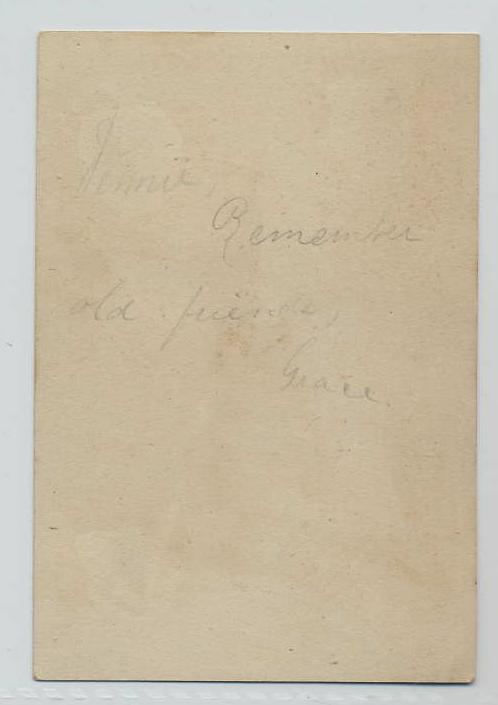 Remember
old friends,
Grace.